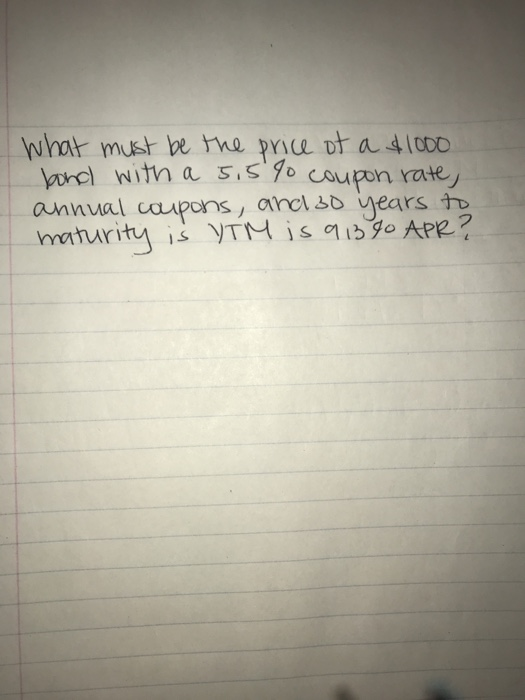 What must be the price of a $1000
bond with a 5.5% coupon rate,
annual coupons, and 30 years to
maturity is YTM is 9.3% APR?